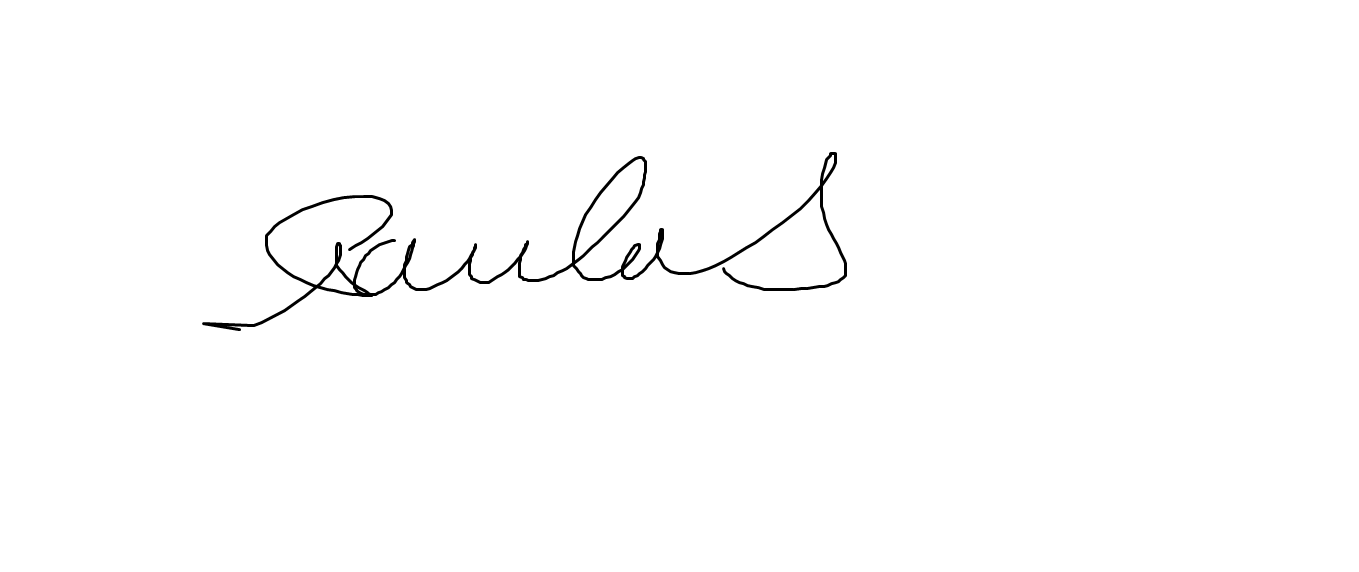 Paula S